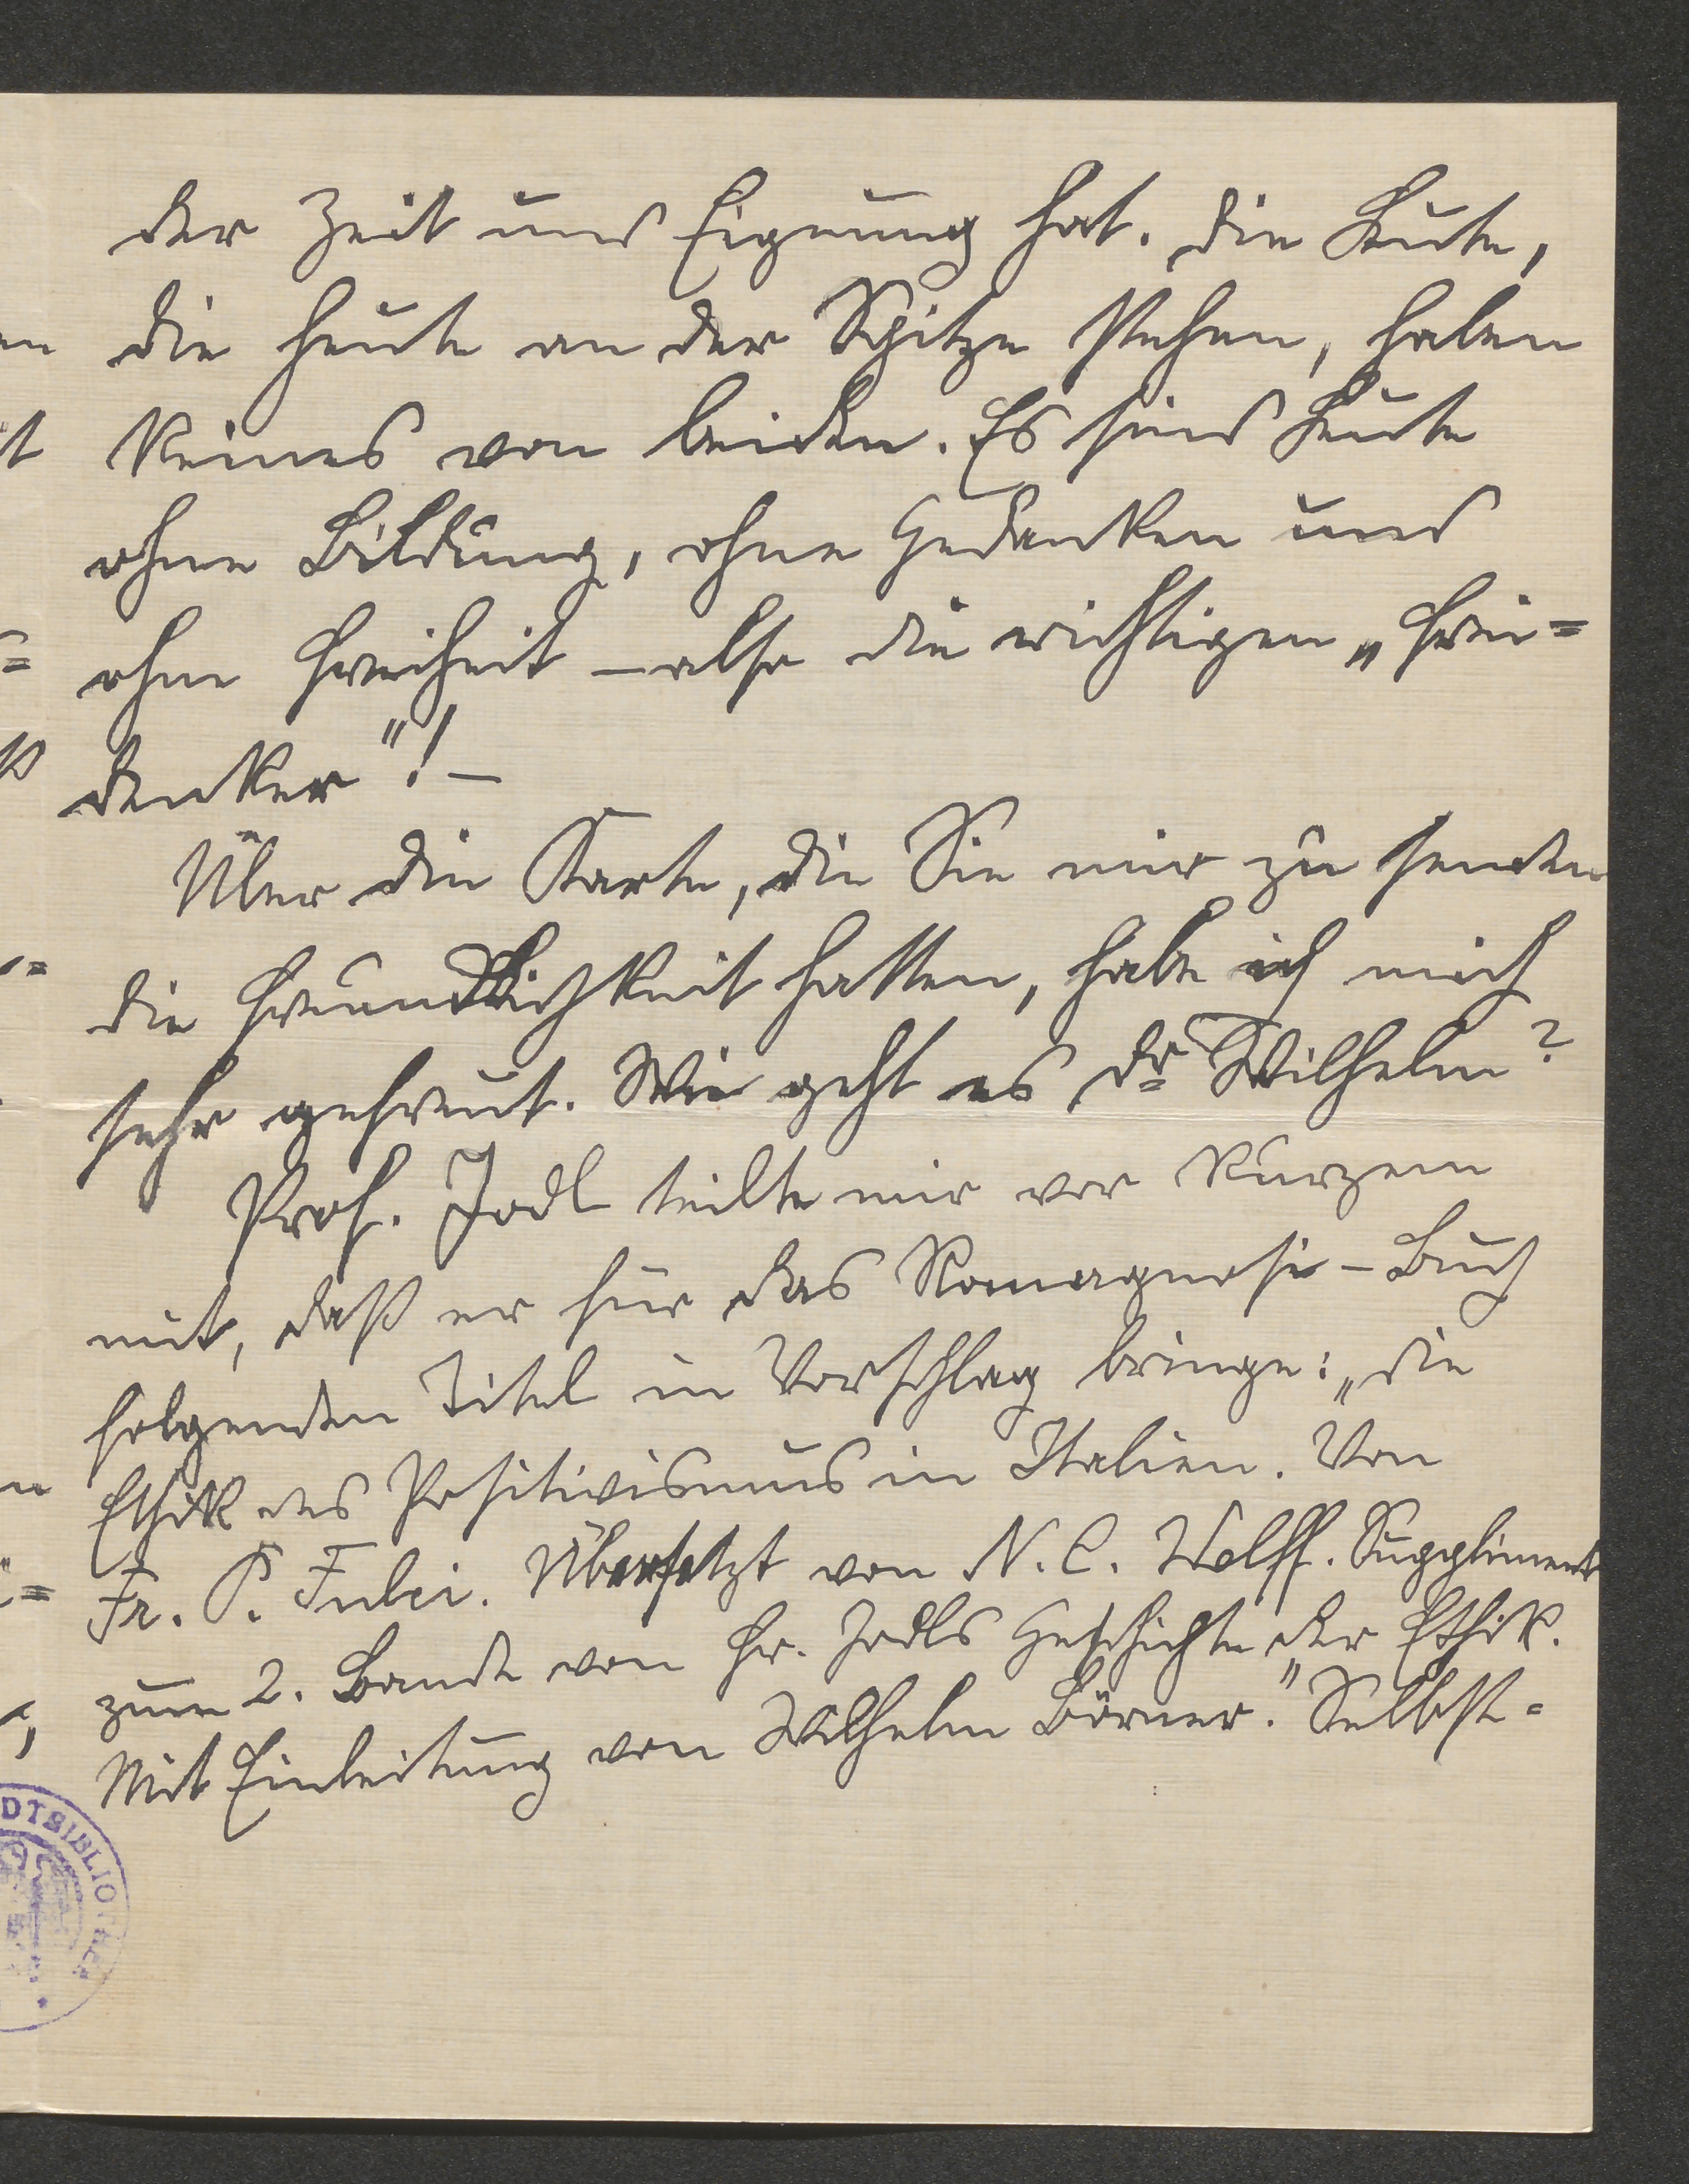 der Zeit und Eignung hat. Die Leute,
die heute an der Spitze stehen, haben
keines von beiden. Es sind Leute
ohne Bildung, ohne Gedanken und
ohne Freiheit – also die richtigen „Frei=
denker"! –
Über die Karte, die Sie mir zu senden
die Freundlichkeit hatten, habe ich mich
sehr gefreut. Wie geht es Dr Wilhelm?
Prof. Jodl teilte mir vor kurzem
mit, daß er für das Romagnosi-Buch
folgenden Titel in Vorschlag bringe: „Die
Ethik des Positivismus in Italien. Von
Fr. P. Fulci. Übersetzt von N. C. Wolff. Suppliment
zum 2. Bande von Fr. Jodls Geschichte der Ethik.
Mit Einleitung von Wilhelm Börner." Selbst=
DTBIBLIOTHEK